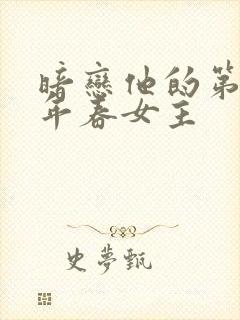 暗戀他的第
年春女主
史夢甄